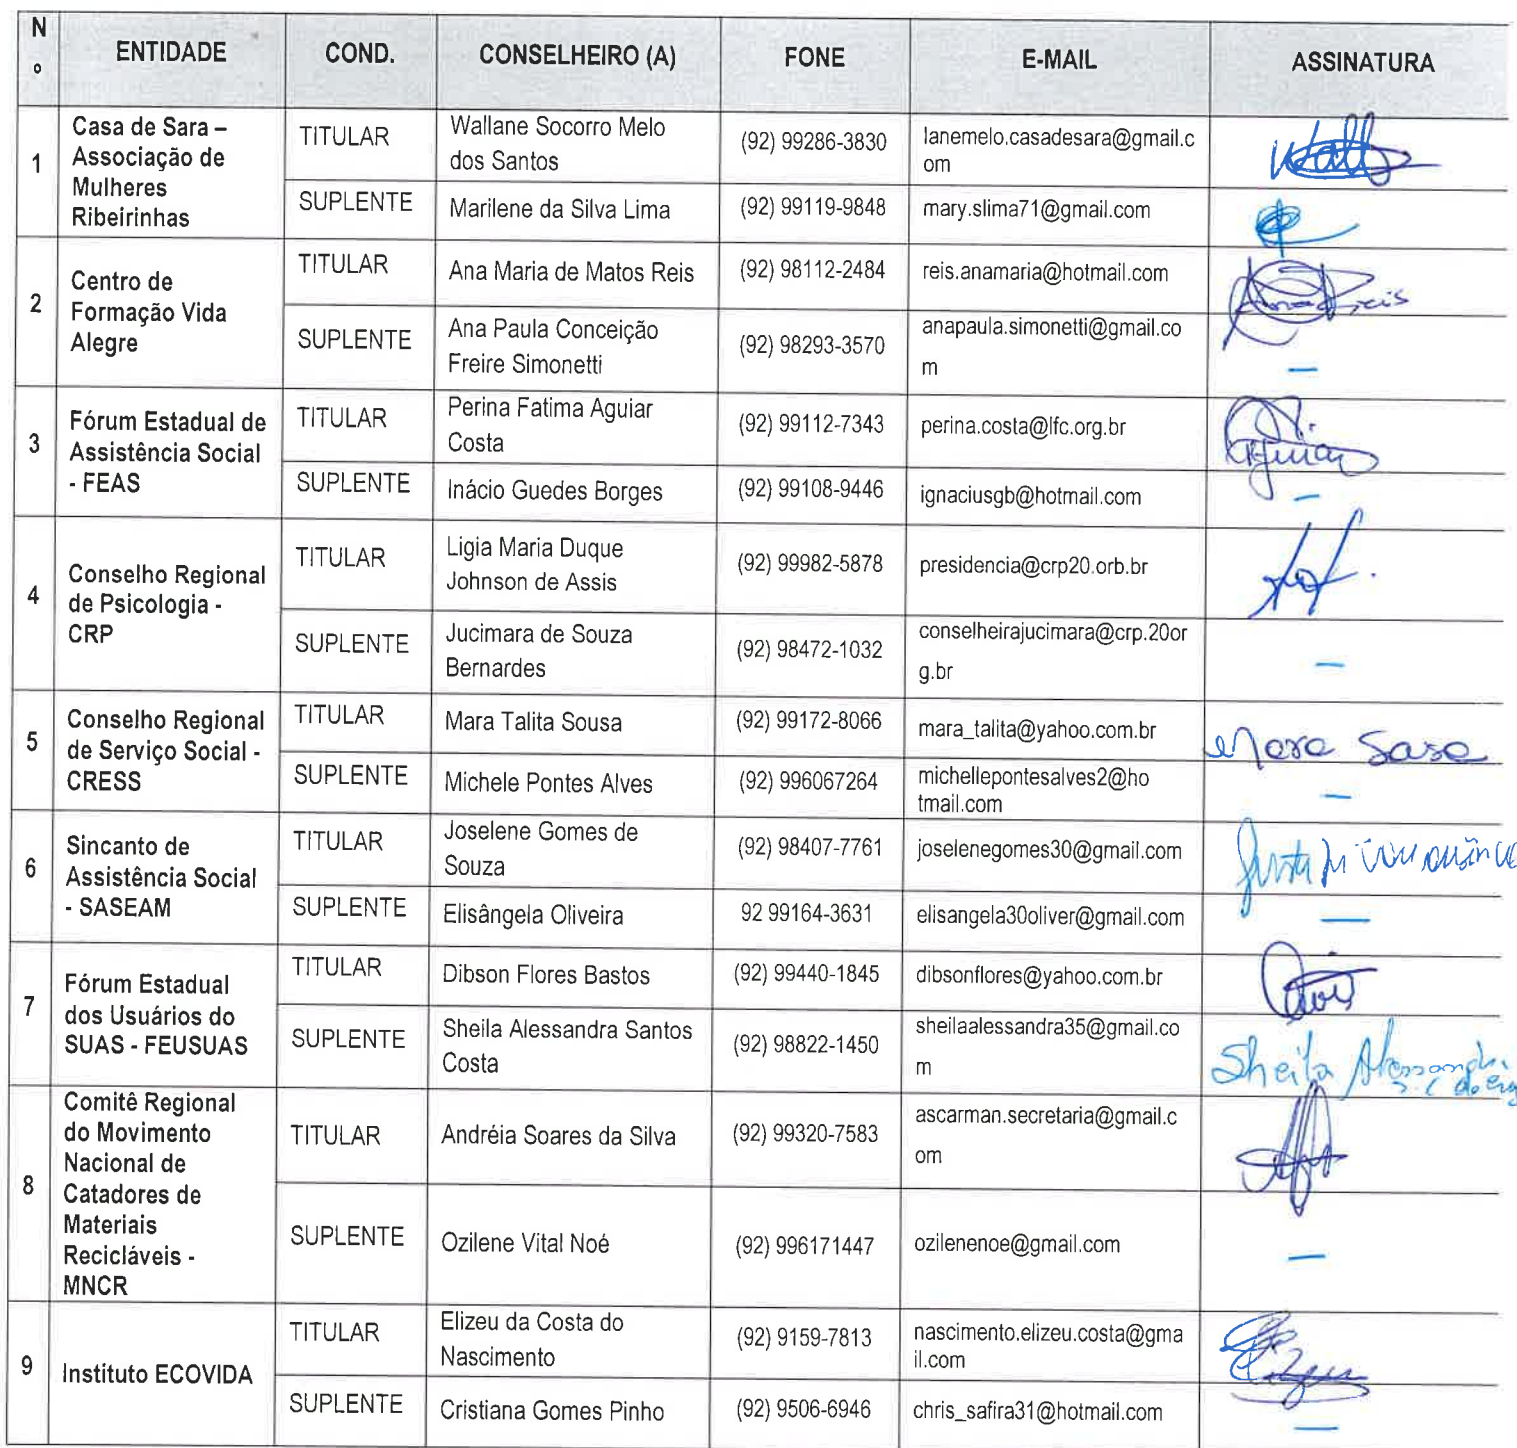 Nº ENTIDADE COND. CONSELHEIRO (A) FONE E-MAIL ASSINATURA
1
Casa de Sara –
Associação de
Mulheres
Ribeirinhas
TITULAR
Wallane Socorro Melo
dos Santos
(92) 99286-3830
lanemelo.casadesara@gmail.c
om
SUPLENTE
Marilene da Silva Lima
(92) 99119-9848
mary.slima71@gmail.com
2
Centro de
Formação Vida
Alegre
TITULAR
Ana Maria de Matos Reis
(92) 98112-2484
reis.anamaria@hotmail.com
SUPLENTE
Ana Paula Conceição
Freire Simonetti
(92) 98293-3570
anapaula.simonetti@gmail.co
m
—
3
Fórum Estadual de
Assistência Social
- FEAS
TITULAR
Perina Fatima Aguiar
Costa
(92) 99112-7343
perina.costa@lfc.org.br
SUPLENTE
Inácio Guedes Borges
(92) 99108-9446
ignaciusgb@hotmail.com
—
4
Conselho Regional
de Psicologia -
CRP
TITULAR
Ligia Maria Duque
Johnson de Assis
(92) 99982-5878
presidencia@crp20.orb.br
SUPLENTE
Jucimara de Souza
Bernardes
(92) 98472-1032
conselheirajucimara@crp.20or
g.br
—
5
Conselho Regional
de Serviço Social -
CRESS
TITULAR
Mara Talita Sousa
(92) 99172-8066
mara_talita@yahoo.com.br
SUPLENTE
Michele Pontes Alves
(92) 996067264
michellepontesalves2@ho
tmail.com
—
6
Sincanto de
Assistência Social
- SASEAM
TITULAR
Joselene Gomes de
Souza
(92) 98407-7761
joselenegomes30@gmail.com
SUPLENTE
Elisângela Oliveira
92 99164-3631
elisangela30oliver@gmail.com
—
7
Fórum Estadual
dos Usuários do
SUAS - FEUSUAS
TITULAR
Dibson Flores Bastos
(92) 99440-1845
dibsonflores@yahoo.com.br
SUPLENTE
Sheila Alessandra Santos
Costa
(92) 98822-1450
sheilaalessandra35@gmail.co
m
Sheila
8
Comitê Regional
do Movimento
Nacional de
Catadores de
Materiais
Recicláveis -
MNCR
TITULAR
Andréia Soares da Silva
(92) 99320-7583
ascarman.secretaria@gmail.c
om
SUPLENTE
Ozilene Vital Noé
(92) 996171447
ozilenenoe@gmail.com
—
9
Instituto ECOVIDA
TITULAR
Elizeu da Costa do
Nascimento
(92) 9159-7813
nascimento.elizeu.costa@gma
il.com
SUPLENTE
Cristiana Gomes Pinho
(92) 9506-6946
chris_safira31@hotmail.com
—